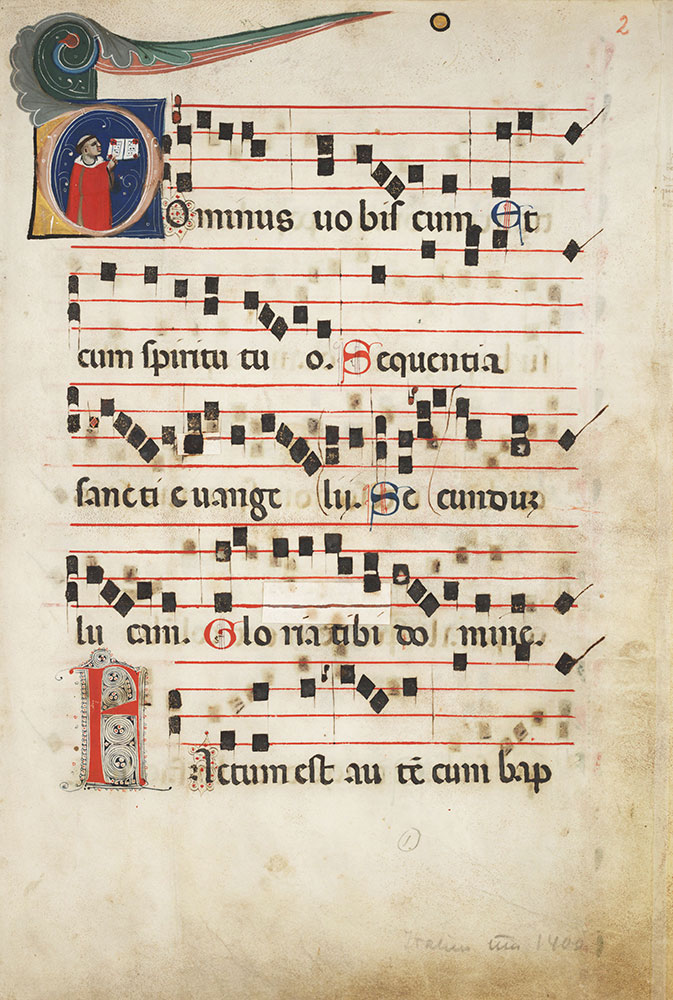 2
Dominus uobiscum Et
cum spiritu tuo. Sequentia
sancti euangelii. Secunduz
lucam. Gloria tibi domine.
Factum est autē cum bap
1.
um 1400